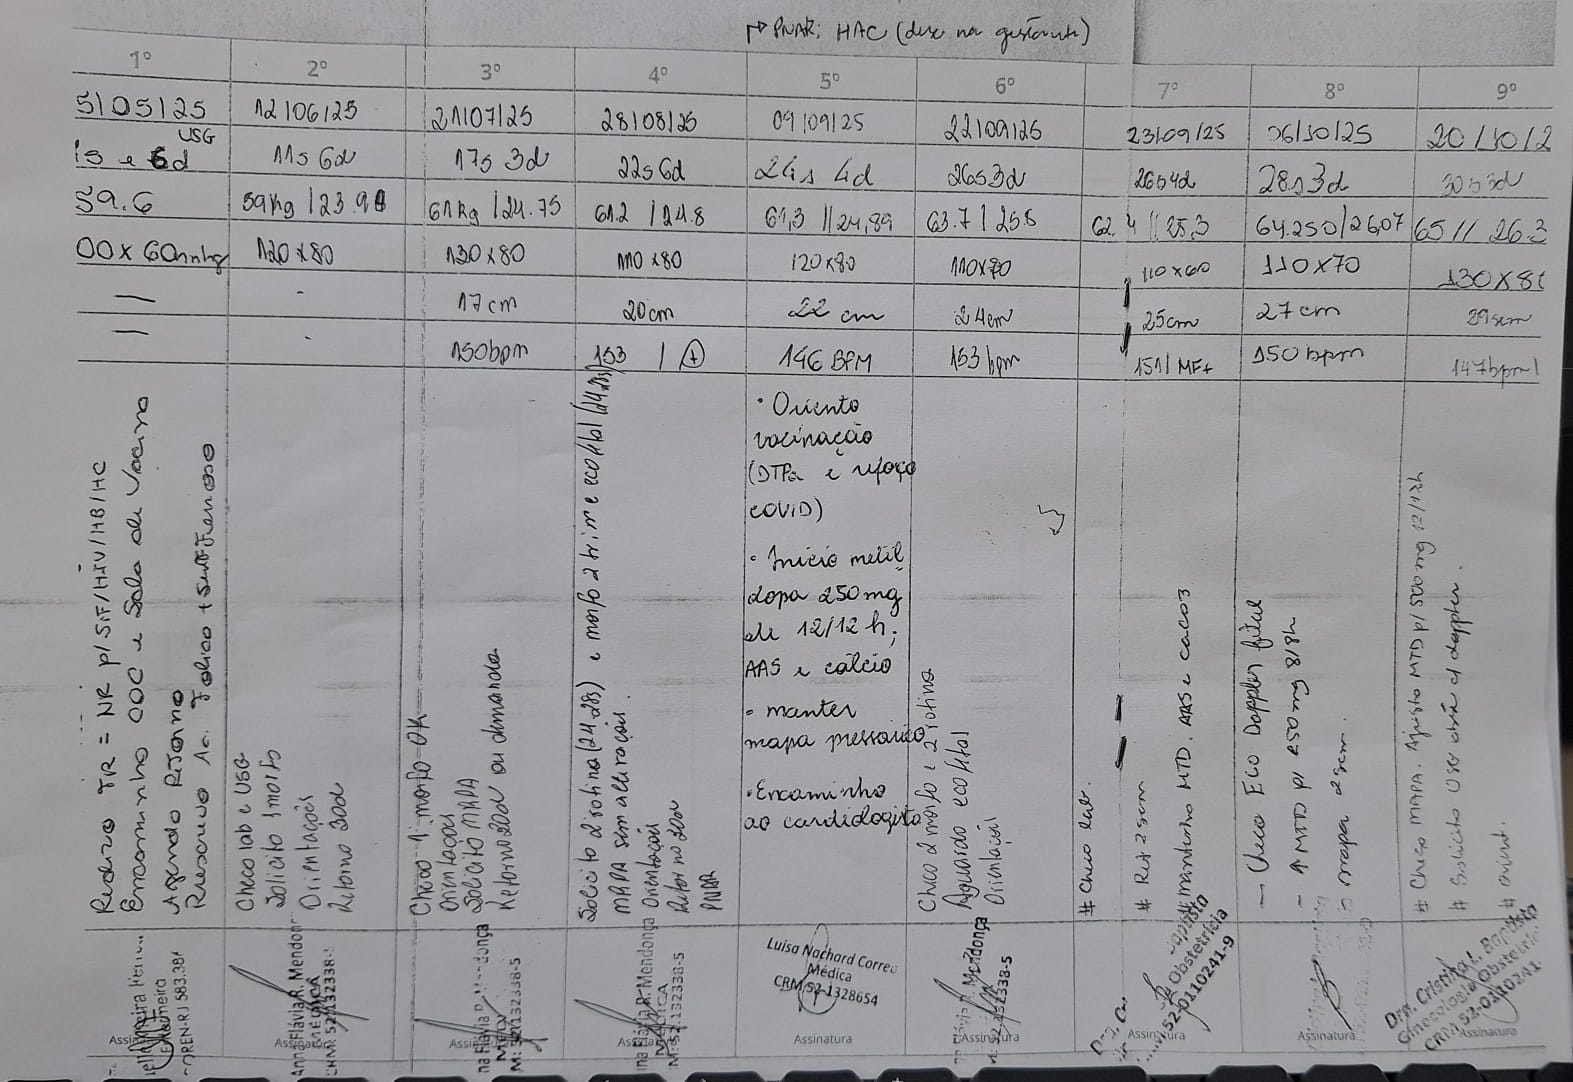 PNAR: HAC (desc na gestante)
1º 2º 3º 4º 5º 6º 7º 8º 9º
5/05/25 12/06/25 21/07/25 28/08/25 09/09/25 22/09/25 23/09/25 06/10/25 20/10/2
USG
is e 6d 11s 6d 17s 3d 22s 6d 24s 4d 26s 3d 26s4d 28s3d 30s3d
59.6 59kg/23.9 61kg/24.75 61.2/24.8 61,3//24,89 63.7/25.8 62.4//25,3 64.250/26,07 65//26.3
00x60mmhg 120x80 130x80 110x80 120x80 110x70 110x60 110x70 130x8
- 17cm 20cm 22 cm 24cm 25cm 27cm
- 150bpm 153/(+) 146 BPM 153bpm 151/MF+ 150bpm 147bpm
Realizo TR = NR p/ SIF/HIV/HB/HC
Encaminho ODC e Sala de Vacina
Agendo Retorno
Ac. Folico + Sulf. Ferroso
Checo lab e USG
Solicito 1 morfo
Orientações
Retorno 30d
Checo 1ª morfo OK
Orientações
Solicito MAPA
Retorno 20d ou demanda
Solicito 2 rotina (24-28s) e morfo 2 trim e ecofetal (24-28s)
MAPA sem alteração.
Orientações
Retorno 20d
PNAR
• Oriento
vacinação
(DTPa e reforço
COVID)
• Inicio metil
dopa 250mg
de 12/12h;
AAS e cálcio
• manter
mapa pressórico
• Encaminho
ao cardiologista
Checo 2 morfo e 2 rotina
Aguardo ecofetal
Orientações
# Checo lab.
# Ret 2 sem
# mantenho MTD, AAS e CaCO3
- Checo ECO Doppler fetal
- ↑ MTD p/ 250mg 8/8h
mapa 2 sem.
# Checo MAPA. Ajusto MTD p/ 500mg 12/12h
# Solicito USG obst c/ doppler.
# orient.
Enfermeira
COREN-RJ 583.384
Assinatura
Anna Flávia R. Mendon
MÉDICA
CRM: 52-132338-
Assinatura
na Flávia R. Mendonça
M: 52-132338-5
Assinatura
nna Flávia R. Mendonça
MÉDICA
M: 52-132338-5
Assinatura
Luisa Nachard Correa
Médica
CRM 52-1328654
Assinatura
Flávia R. Mendonça
52-132338-5
Assinatura
Obstetrícia
52-0110241-9
Assinatura
Assinatura
Dra. Cristina L. Baptista
Ginecologia Obstetríc
CRM 52-0110241
Assinatura